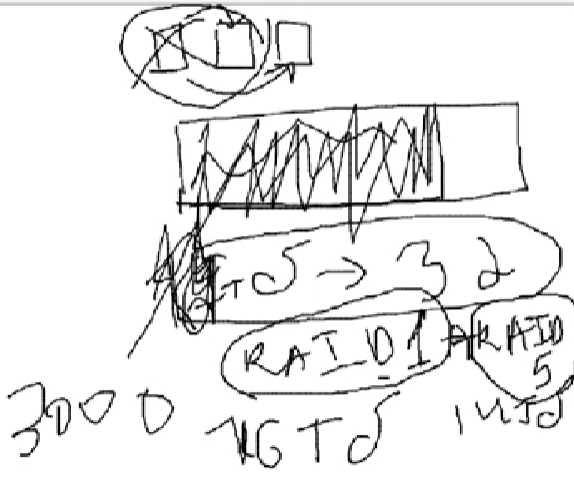 Тб → 3 2
RAID 1 RAID
5
3000 16 Тб 14Тб